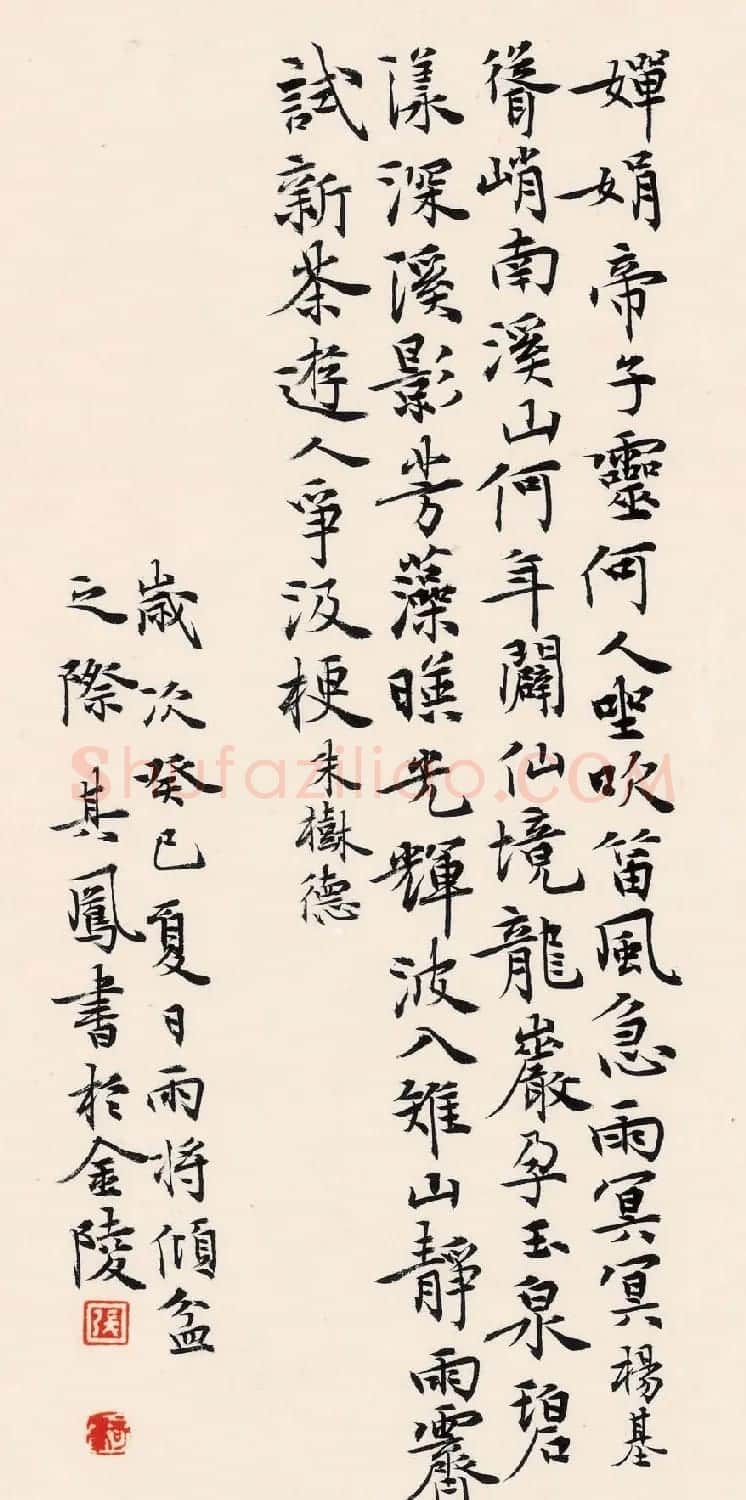 嬋娟帝子靈何人坐吹笛風急雨冥冥楊基
聳峭南溪山何年闢仙境龍巖孕玉泉碧
漾深溪影芳藻暎光輝波入雉山靜雨霽
試新茶遊人爭汲梗朱樹德
歲次癸巳夏日雨將傾盆
之際其鳳書於金陵
Shufaziliao.COM